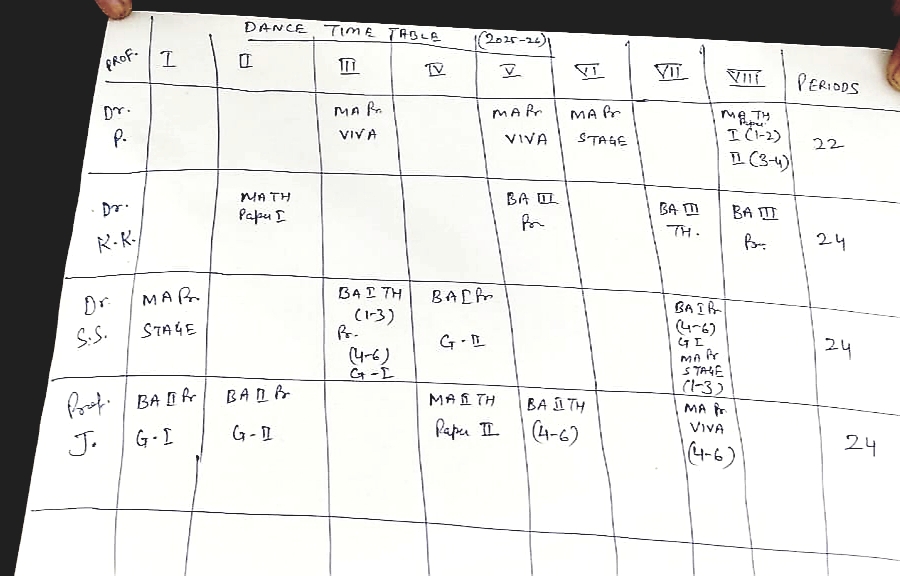 DANCE TIME TABLE (2025-26)
PROF. I II III IV V VI VII VIII PERIODS
Dr. P.
MA Pr VIVA
MA Pr VIVA
MA Pr STAGE
MA TH Paper I (1-2) II (3-4)
22
Dr. K.K.
MA TH Paper I
BA III Pr
BA III TH.
BA III Pr.
24
Dr S.S.
MA Pr STAGE
BA I TH (1-3) Pr. (4-6) G-I
BA I Pr G-II
BA I Pr (4-6) G I MA Pr STAGE (1-3)
24
Prof. J.
BA II Pr G-I
BA II Pr G-II
MA II TH Paper II
BA II TH (4-6)
MA Pr VIVA (4-6)
24